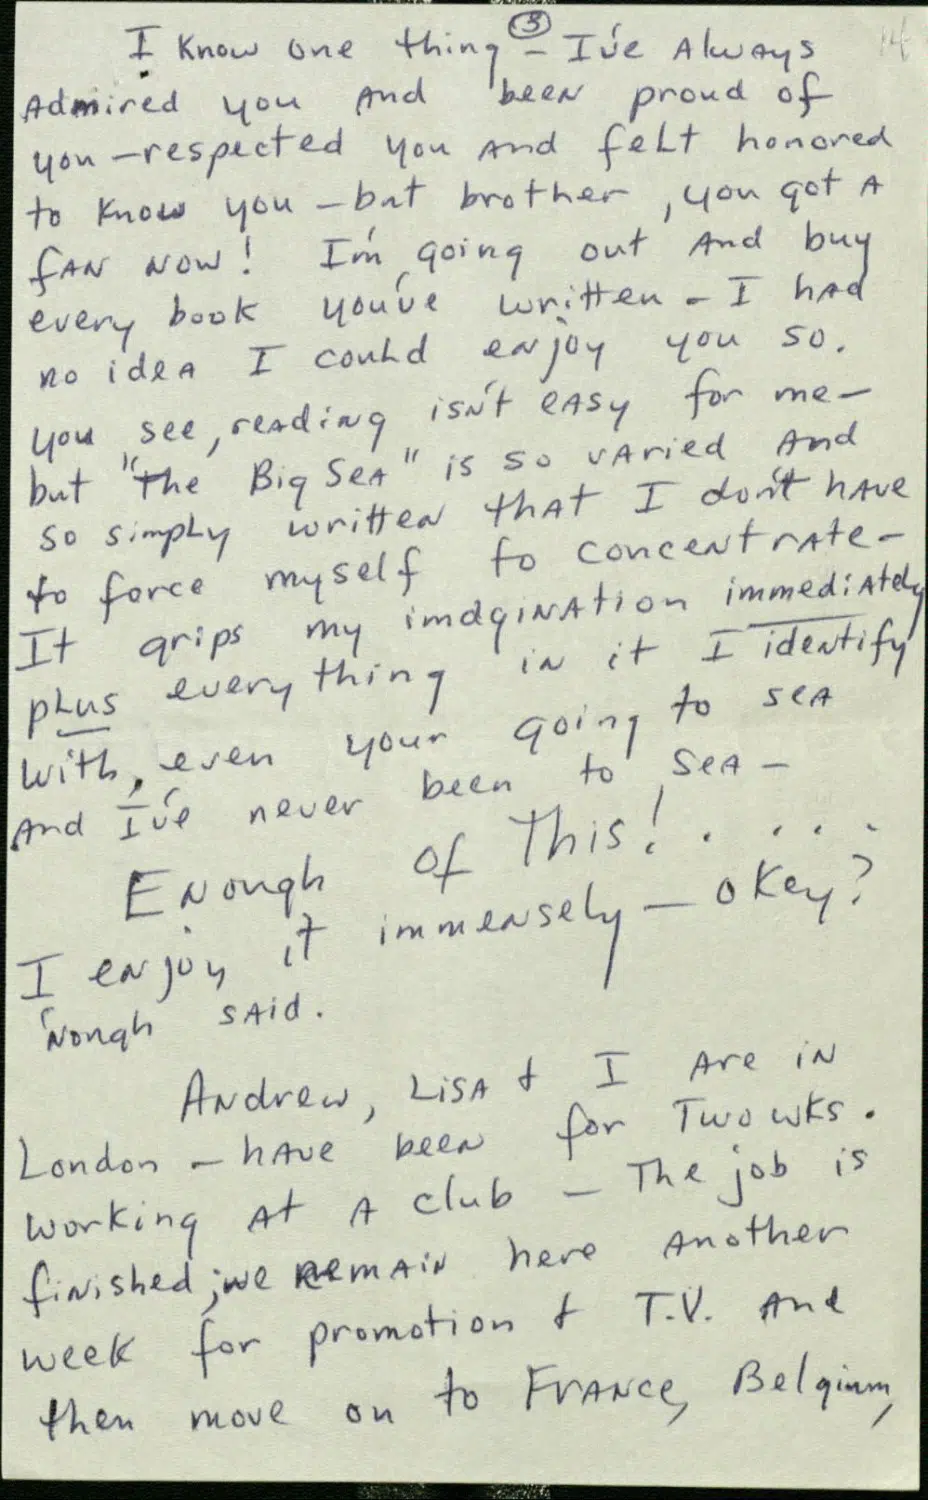 ③
14
I know one thing – I've always
admired you and been proud of
you – respected you and felt honored
to know you – but brother, you got a
fan now! I'm going out and buy
every book you've written – I had
no idea I could enjoy you so.
you see, reading isn't easy for me –
but "The Big Sea" is so varied and
so simply written that I don't have
to force myself to concentrate –
It grips my imagination immediately
plus everything in it I identify
with, even your going to sea
And I've never been to sea –
Enough of This! . . . . .
I enjoy it immensely – okey?
'Nough said.
Andrew, Lisa & I are in
London – have been for Two wks.
working at a club – The job is
finished; we remain here another
week for promotion & T.V. and
then move on to France, Belgium,